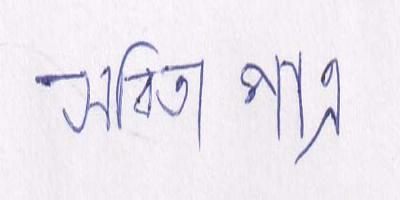 সবিতা পাত্র